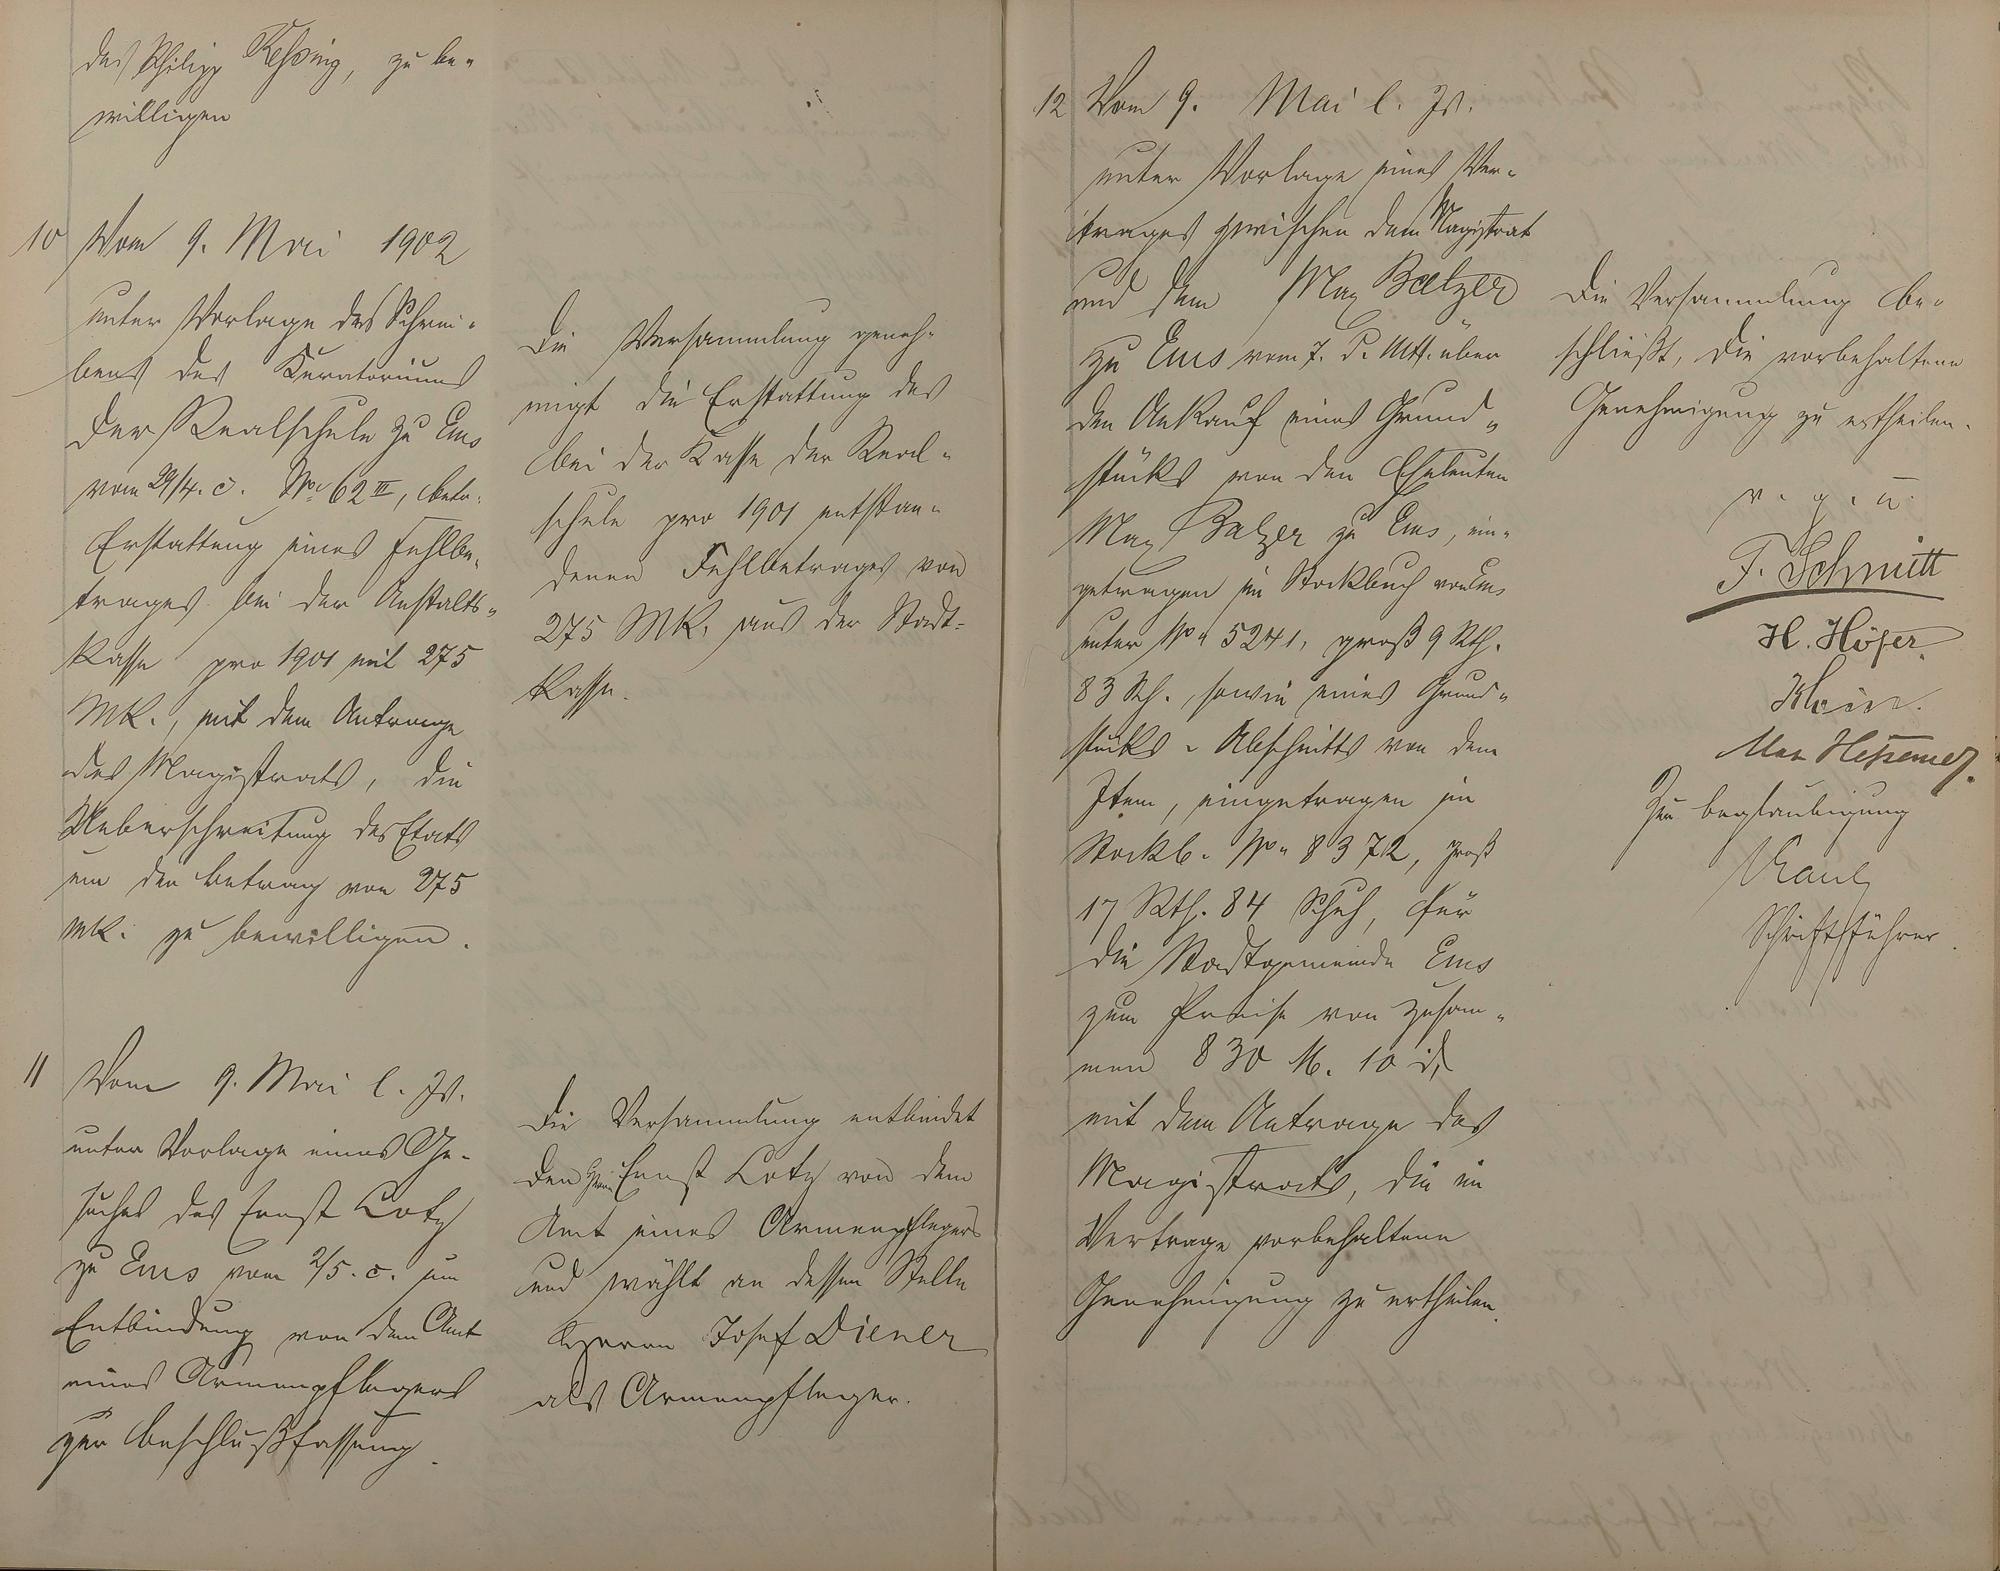 des Philipp Kessing, zu be-
willigen
10 Vom 9. Mai 1902
unter Vorlage des Schrei-
bens des Kuratoriums
der Realschule zu Ems
vom 29/4. c. No 62 III, betr.
Erstattung eines Fehlbe-
trages bei der Anstalts-
kasse pro 1901 mit 275
Mk., mit dem Antrage
des Magistrats, die
Ueberschreitung des Etats
um den Betrag von 275
Mk. zu bewilligen.
Die Versammlung geneh-
migt die Erstattung des
bei der Kasse der Real-
schule pro 1901 entstan-
denen Fehlbetrages von
275 Mk. aus der Stadt-
kasse.
11 Vom 9. Mai l. Js.
unter Vorlage eines Ge-
suches des Ernst Lotz
zu Ems vom 2/5. c. um
Entbindung von dem Amt
eines Armenpflegers
zur Beschlußfassung.
Die Versammlung entbindet
den Herrn Ernst Lotz von dem
Amt eines Armenpflegers
und wählt an dessen Stelle
Herrn Josef Diener
als Armenpfleger.
12 Vom 9. Mai l. Js.
unter Vorlage eines Ver-
trages zwischen dem Magistrat
und dem Max Balzer
zu Ems vom 7. d. Mts. über
den Ankauf eines Grund-
stücks von den Eheleuten
Max Balzer zu Ems, ein-
getragen im Stockbuch von Ems
unter No 5241, groß 9 Rth.
83 Sch., sowie eines Grund-
stücks-Abschnitts von dem
Item, eingetragen im
Stockb. No 8372, groß
17 Rth. 84 Schuh, für
die Stadtgemeinde Ems
zum Preise von zusam-
men 830 M. 10 d,
mit dem Antrage des
Magistrats, die im
Vertrage vorbehaltene
Genehmigung zu ertheilen.
Die Versammlung be-
schließt, die vorbehaltene
Genehmigung zu ertheilen.
v. g. u.
F. Schmitt
H. Höfer.
Klein.
Max Hessemer.
Zur Beglaubigung
Kaul
Schriftführer.